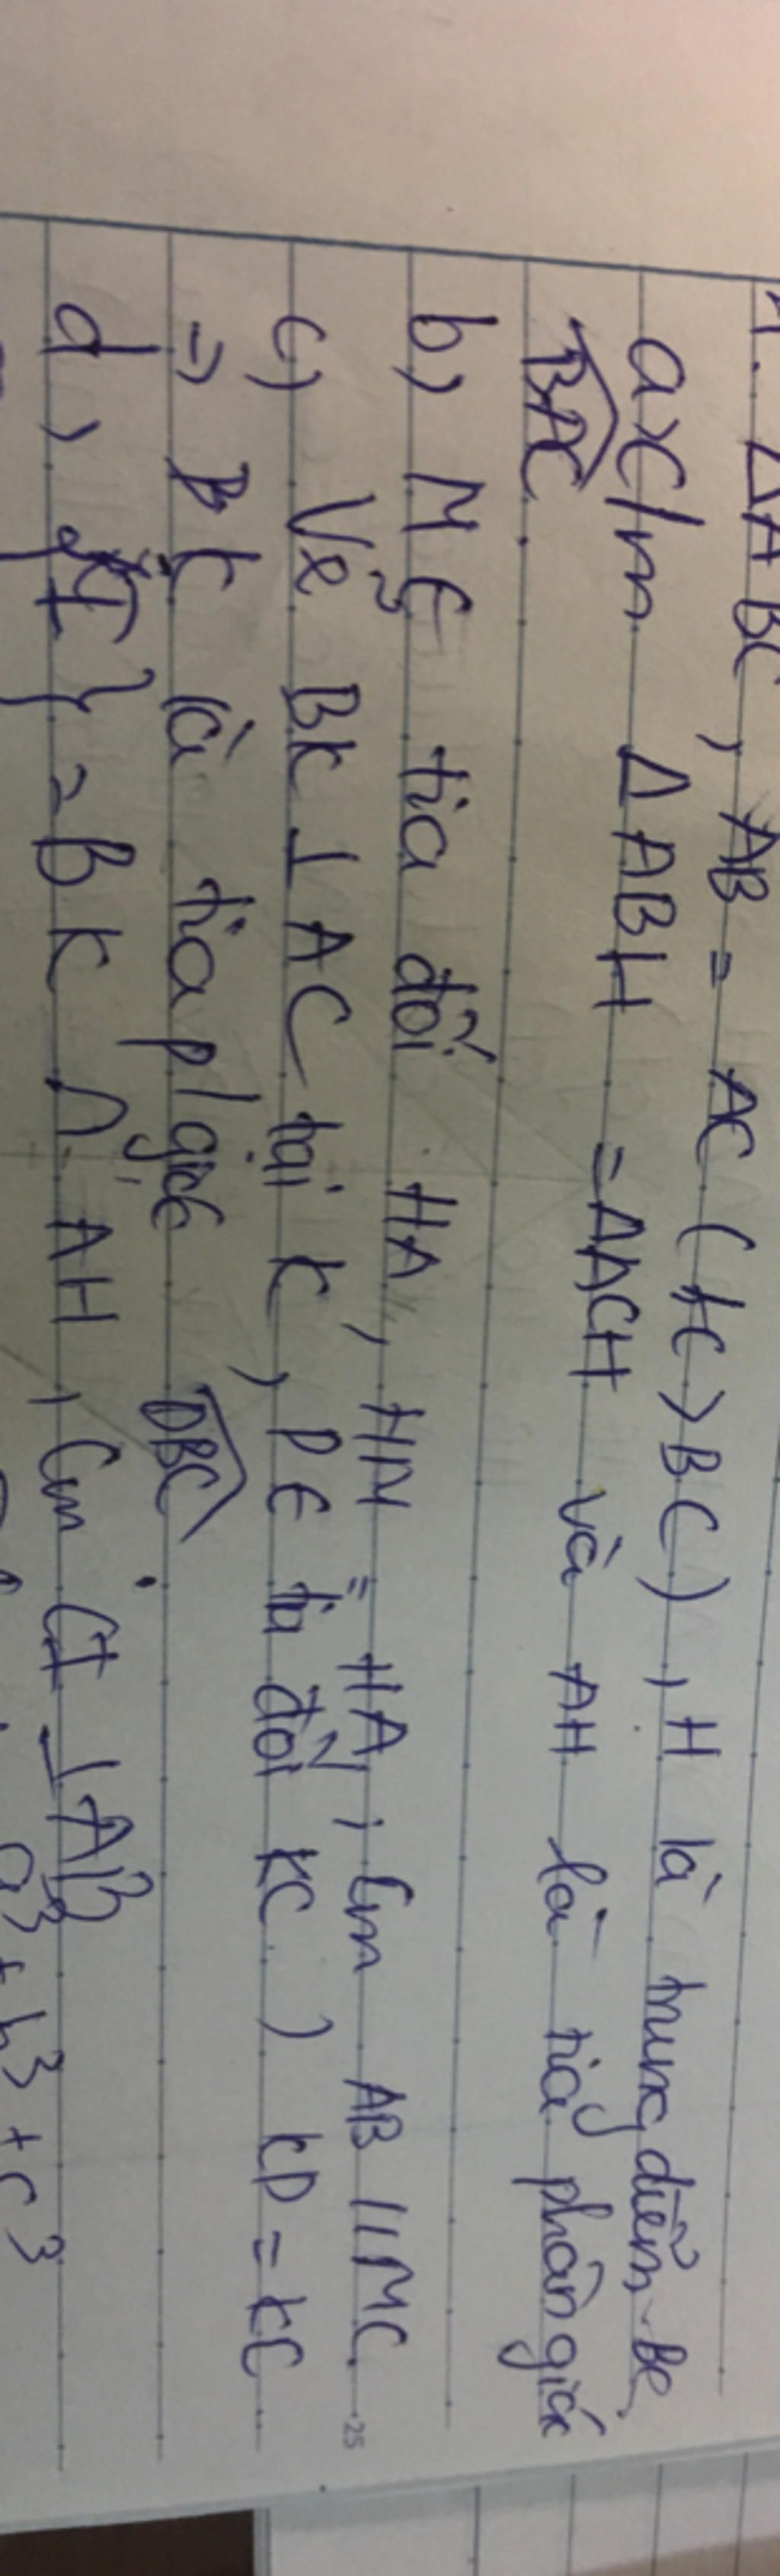 ΔABC, AB = AC (AC > BC), H là trung điểm BC,
a) C/m ΔABH = ΔACH và AH là tia phân giác
BAC.
b) M ∈ tia đối HA, HM = HA, Cm AB // MC.
c) Vẽ BK ⊥ AC tại K, D ∈ tia đối KC) KD = KC
=> BK là tia p/giác DBC.
d) {I} = BK ∩ AH, Cm CI ⊥ AB
+ b³ + c³
25